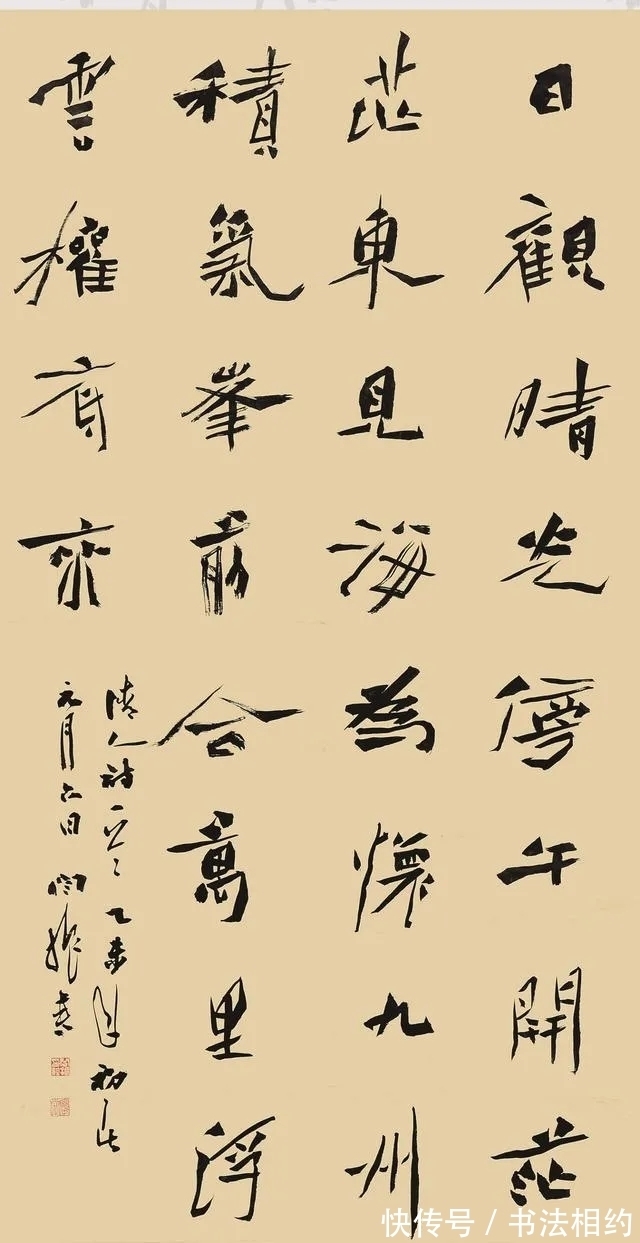 日觀晴光傍午開茫
茫東見海為懷九州
積氣峯前合萬里浮
雲權
清人詩一 乙未年初
元月六日
快传号 / 书法相约